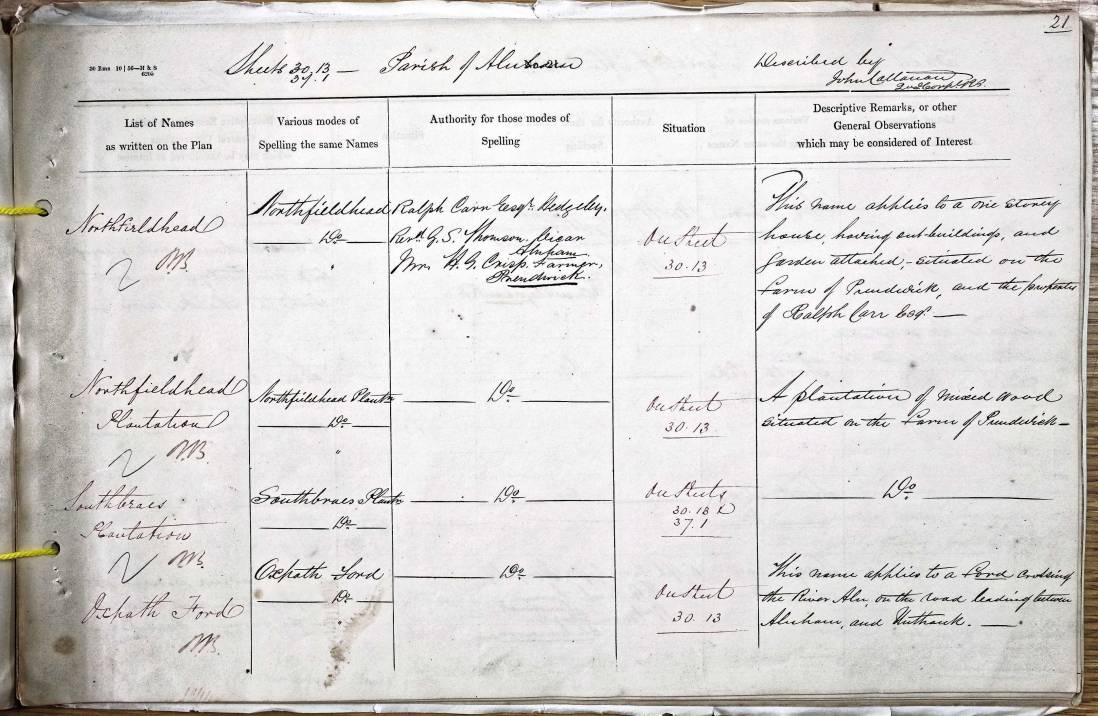 21
20 Rms 10 | 56—H & S
6206
Sheets 30.13
37.1 — Parish of Alnham
Described by
John Callanan
2nd Corpl RS.
List of Names
as written on the Plan
Various modes of
Spelling the same Names
Authority for those modes of
Spelling
Situation
Descriptive Remarks, or other
General Observations
which may be considered of Interest
Northfieldhead
Northfieldhead
Do
"
Ralph Carr Esqr. Hedgeley.
Revd. G. S. Thomson. Vicar
Alnham
Mr. H. G. Crisp. Farmer,
Prendwick.
On Sheet
30.13
This name applies to a one storey
house, having out-buildings, and
Garden attached; - situated on the
Farm of Prendwick, and the property
of Ralph Carr Esqr. —
Northfieldhead
Plantation
Northfieldhead Plantn
Do
"
Do
On Sheet
30.13
A plantation of mixed wood
situated on the Farm of Prendwick —
Southbraes
Plantation
Southbraes Plantn
Do
Do
On Sheets
30.13 &
37.1
Do
Oxpath Ford
Oxpath Ford
Do
"
Do
On Sheet
30.13
This name applies to a Ford crossing
the River Aln, on the road leading between
Alnham, and Unthank. —